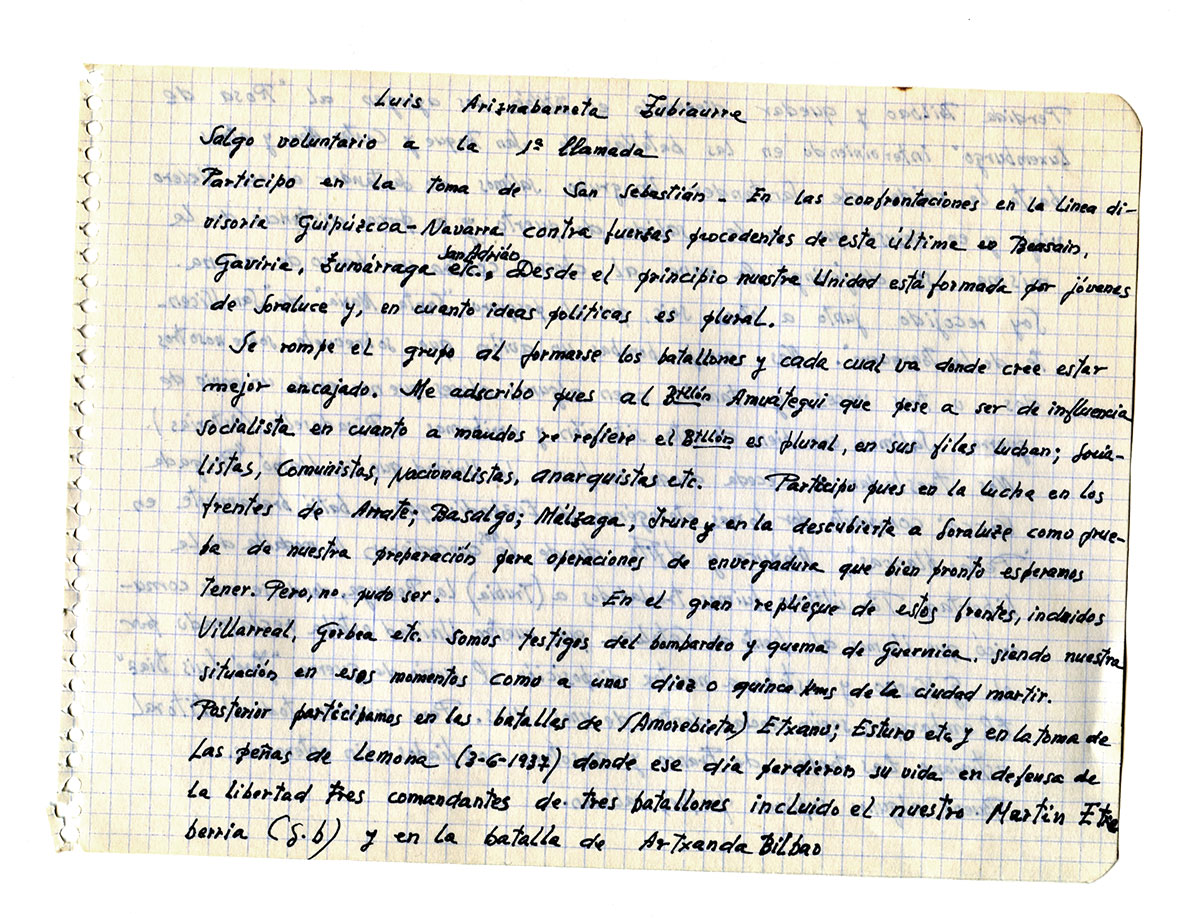 Luis Ariznabarreta Zubiaurre
Salgo voluntario a la 1ª llamada
Participo en la toma de San Sebastián. En las confrontaciones en la linea di-
visoria Guipúzcoa-Navarra contra fuersas procedentes de esta última en Beasain,
San Adrián
Gaviria, Zumárraga etc., Desde el principio nuestra Unidad está formada por jóvenes
de Soraluce y, en cuanto ideas políticas, es plural.
Se rompe el grupo al formarse los batallones y cada cual va donde cree estar
mejor encajado. Me adscribo pues al Btllón Amuátegui que pese a ser de influencia
socialista en cuanto a mandos re refiere el Btllón es plural, en sus filas luchan; Socia-
listas, Comunistas, Nacionalistas, anarquistas etc. Participo pues en la lucha en los
frentes de Arrate; Basalgo; Málzaga, Irure y en la descubierta a Soraluze como prue-
ba de nuestra preparación para operaciones de envergadura que bien pronto esperamos
tener. Pero, no pudo ser. En el gran repliegue de estos frentes, incluidos
Villarreal, Gorbea etc. somos testigos del bombardeo y quema de Guernica. siendo nuestra
situación en esos momentos como a unos diez o quince kms de la ciudad martir.
Posterior participamos en las batallas de (Amorebieta) Etxano; Esturo etc y en la toma de
Las peñas de Lemona (3-6-1937) donde ese día perdieron su vida en defensa de
la libertad tres comandantes de tres batallones incluido el nuestro Martin Etxe
berria (g.b) y en la batalla de Artxanda Bilbao